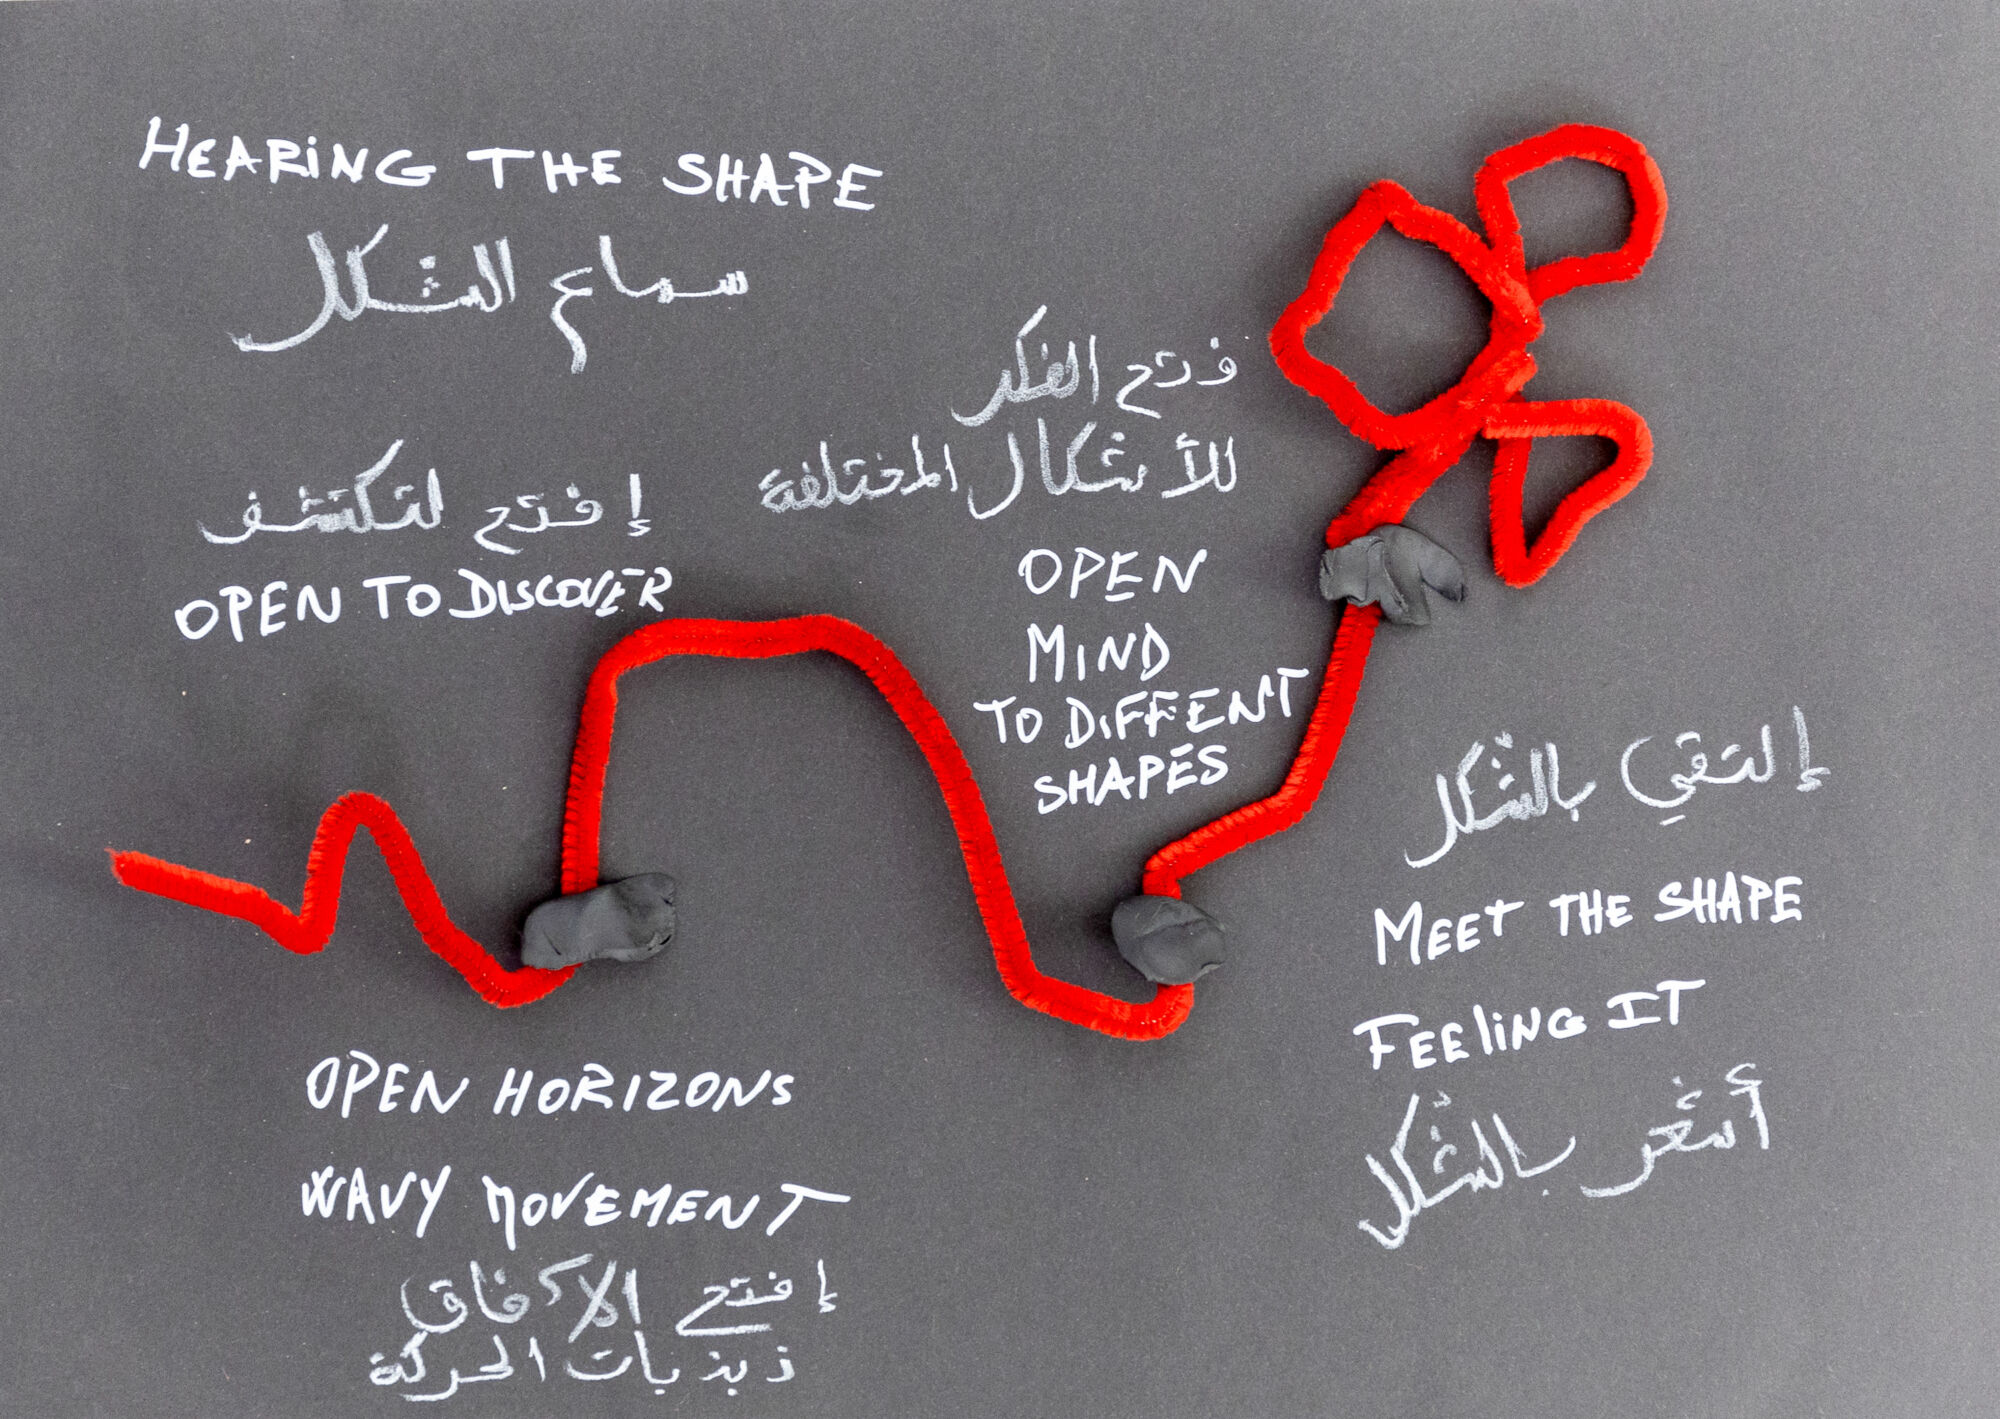 HEARING THE SHAPE
سماع الشكل
فتح الفكر
للأشكال المختلفة
إفتح لتكتشف
OPEN TO DISCOVER
OPEN
MIND
TO DIFFENT
SHAPES
إلتقي بالشكل
MEET THE SHAPE
FEELING IT
أشعر بالشكل
OPEN HORIZONS
WAVY MOVEMENT
إفتح الأفاق
ذبذبات الحركة